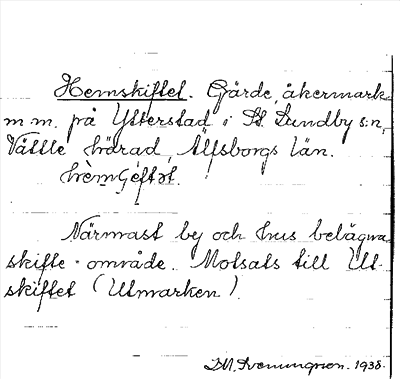 Hemskiftet. Gärde, åkermark
m.m. på Ytterstad i St. Lundby s:n,
Vättle härad, Älfsborgs län.
Närmast by och hus belägna
skifte-område. Motsats till Ut-
skiftet (Utmarken).
1938.